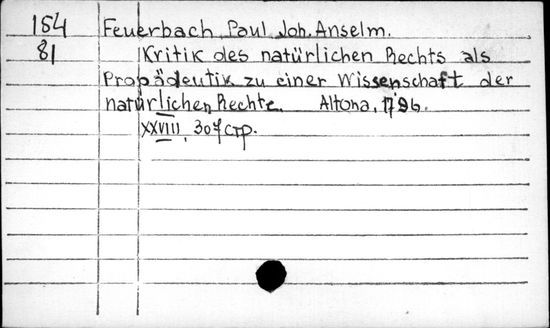 154 Feuerbach Paul Joh. Anselm.
81 Kritik des natürlichen Rechts als
Propädeutik zu einer Wissenschaft der
natürlichen Rechte. Altona, 1796.
XXVIII, 307 стр.